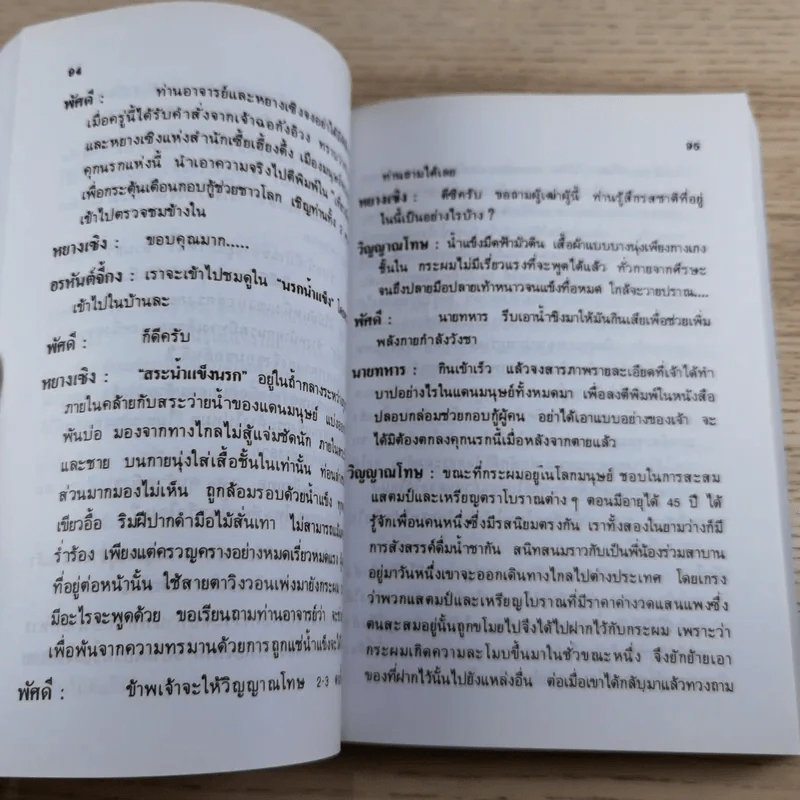 94
พัศดี : ท่านอาจารย์และหยางเซิงจงอย่าได้
เมื่อครู่นี้ได้รับคำสั่งจากเจ้าฉอกังอ๊วง
และหยางเซิงแห่งสำนักเซี้ยเฮี้ยงตึ้ง
คุกนรกแห่งนี้ นำเอาความจริงไปตีพิมพ์ใน
เพื่อกระตุ้นเตือนกอบกู้ช่วยชาวโลก เชิญท่านทั้ง 2
เข้าไปตรวจชมข้างใน
หยางเซิง : ขอบคุณมาก.....
อรหันต์จี้กง : เราจะเข้าไปชมดูใน "นรกน้ำแข็ง"
เข้าไปในบ้านละ
พัศดี : ก็ดีครับ
หยางเซิง : "สระน้ำแข็งนรก" อยู่ในถ้ำกลางระหว่าง
ภายในคล้ายกับสระว่ายน้ำของแดนมนุษย์
พันบ่อ มองจากทางไกลไม่สู้แจ่มชัดนัก
และชาย บนกายนุ่งใส่เสื้อชั้นในเท่านั้น
ส่วนมากมองไม่เห็น ถูกล้อมรอบด้วยน้ำแข็ง
เขียวอื้อ ริมฝีปากดำมือไม้สั่นเทา ไม่สามารถ
ร่ำร้อง เพียงแต่ครวญครางอย่างหมดเรี่ยวหมดแรง
ที่อยู่ต่อหน้านั้น ใช้สายตาวิงวอนเพ่งมายังกระผม
มีอะไรจะพูดด้วย ขอเรียนถามท่านอาจารย์ว่า
เพื่อพ้นจากความทรมานด้วยการถูกแช่น้ำแข็ง
พัศดี : ข้าพเจ้าจะให้วิญญาณโทษ 2-3
95
ท่านถามได้เลย
หยางเซิง : ดีซิครับ ขอถามผู้เฒ่าผู้นี้ ท่านรู้สึกรสชาติที่อยู่
ในนี้เป็นอย่างไรบ้าง ?
วิญญาณโทษ : น้ำแข็งมืดฟ้ามัวดิน เสื้อผ้าแบบบางนุ่งเพียงกางเกง
ชั้นใน กระผมไม่มีเรี่ยวแรงที่จะพูดได้แล้ว ทั่วกายจากศีรษะ
จนถึงปลายมือปลายเท้าหนาวจนแข็งทื่อหมด ใกล้จะวายปราณ....
พัศดี : นายทหาร รีบเอาน้ำขิงมาให้มันกินเสียเพื่อช่วยเพิ่ม
พลังกายกำลังวังชา
นายทหาร : กินเข้าเร็ว แล้วจงสารภาพรายละเอียดที่เจ้าได้ทำ
บาปอย่างไรในแดนมนุษย์ทั้งหมดมา เพื่อลงตีพิมพ์ในหนังสือ
ปลอบกล่อมช่วยกอบกู้ผู้คน อย่าได้เอาแบบอย่างของเจ้า จะ
ได้มิต้องตกลงคุกนรกนี้เมื่อหลังจากตายแล้ว
วิญญาณโทษ : ขณะที่กระผมอยู่ในโลกมนุษย์ ชอบในการสะสม
แสตมป์และเหรียญตราโบราณต่าง ๆ ตอนมีอายุได้ 45 ปี ได้
รู้จักเพื่อนคนหนึ่งซึ่งมีรสนิยมตรงกัน เราทั้งสองในยามว่างก็มี
การสังสรรค์ดื่มน้ำชากัน สนิทสนมราวกับเป็นพี่น้องร่วมสาบาน
อยู่มาวันหนึ่งเขาจะออกเดินทางไกลไปต่างประเทศ โดยเกรง
ว่าพวกแสตมป์และเหรียญโบราณที่มีราคาค่างวดแสนแพงซึ่ง
ตนสะสมอยู่นั้นถูกขโมยไปจึงได้ไปฝากไว้กับกระผม เพราะว่า
กระผมเกิดความละโมบขึ้นมาในชั่วขณะหนึ่ง จึงยักย้ายเอา
ของที่ฝากไว้นั้นไปยังแหล่งอื่น ต่อเมื่อเขาได้กลับมาแล้วทวงถาม